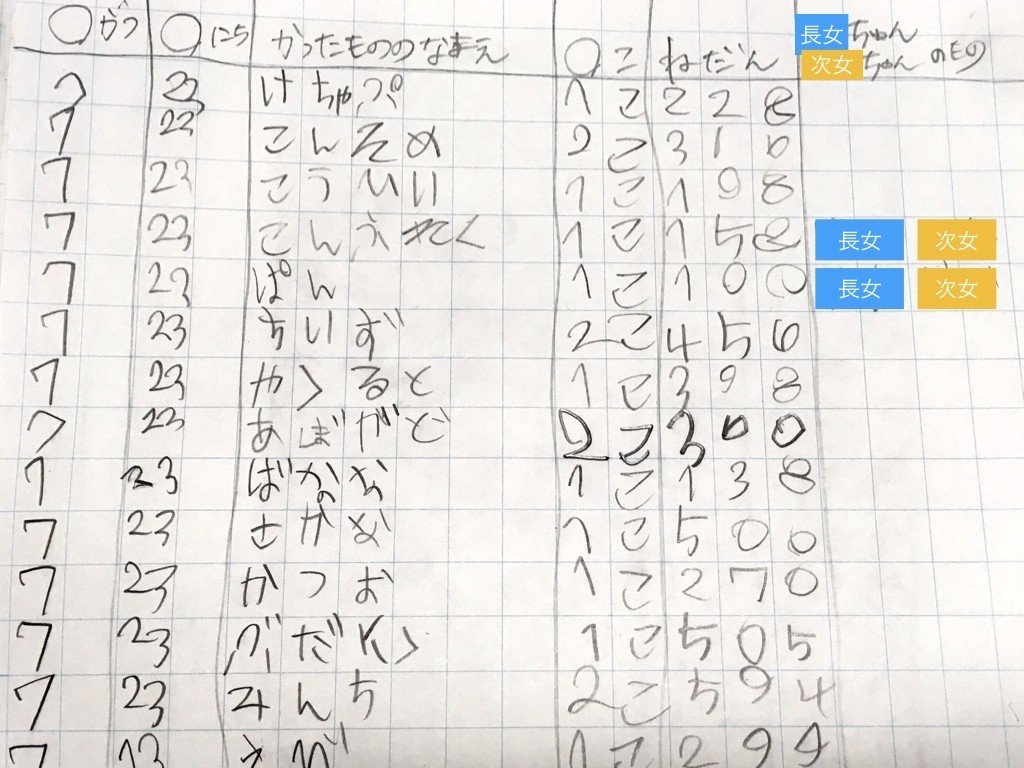 ○がつ ○にち かったもののなまえ ○こ ねだん 長女ちゃん 次女ちゃん のもの
7 23 けちゃぷ 1こ 228
7 23 こんそめ 2こ 310
7 23 こうひい 1こ 198
7 23 こんふれく 1こ 158 長女 次女
7 23 ぱん 1こ 100 長女 次女
7 23 ちいず 2こ 456
7 23 やくると 1こ 398
7 23 あぼがど 2こ 300
7 23 ばなな 1こ 138
7 23 さかな 1こ 500
7 23 かつお 1こ 270
7 23 ぶだにく 1こ 505
7 23 みんち 2こ 594
7 23 えび 1こ 299